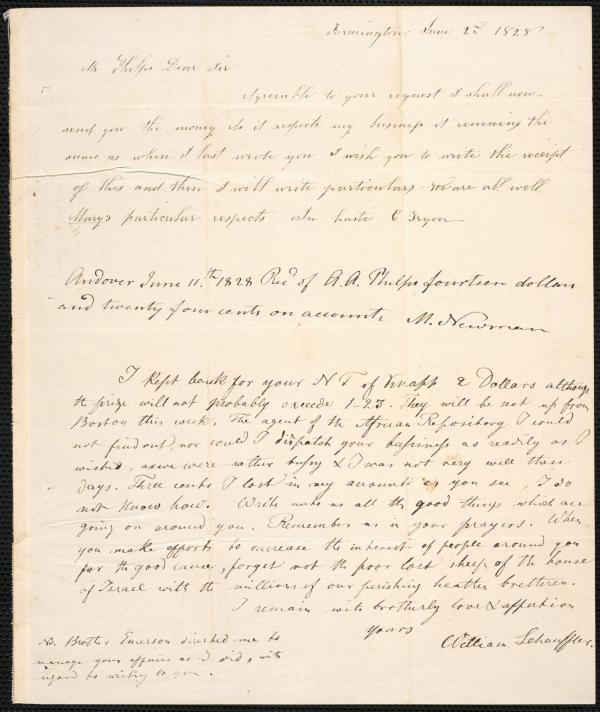 Farmington June 2d 1828
Mr Phelps Dear Sir
Agreeable to your request I shall now
send you the money As it respects my business it remains the
same as when I last wrote you I wish you to write the receipt
of this and then I will write particulars. We are all well
Mary's particular respects In haste C Tryon
Andover June 11.th 1828 Recd of A.A. Phelps fourteen dollars
and twenty four cents on account. M. Newman
I kept back for your N T of Knapp 2 Dollars although
the prize will not probably exceede 1-25. They will be not up from
Boston this week. The agent of the African Repository I could
not find out, nor could I dispatch your business as readily as I
wished, as we were rather bussy & I was not very well these
days. Three cents I lost in my accounts as you see. I do
not know how. Write unto us all the good things which are
going on around you. Remember us in your prayers. When
you make efforts to encrease the interest of people around you
for the good cause, forget not the poor lost sheep of the house
of Israel with the millions of our perishing heathen brethren.
I remain with brotherly love & affection
yours
William Schauffler.
NB. Brother Emerson directed me to
manage your affairs as I did, with
regard to writing to you.